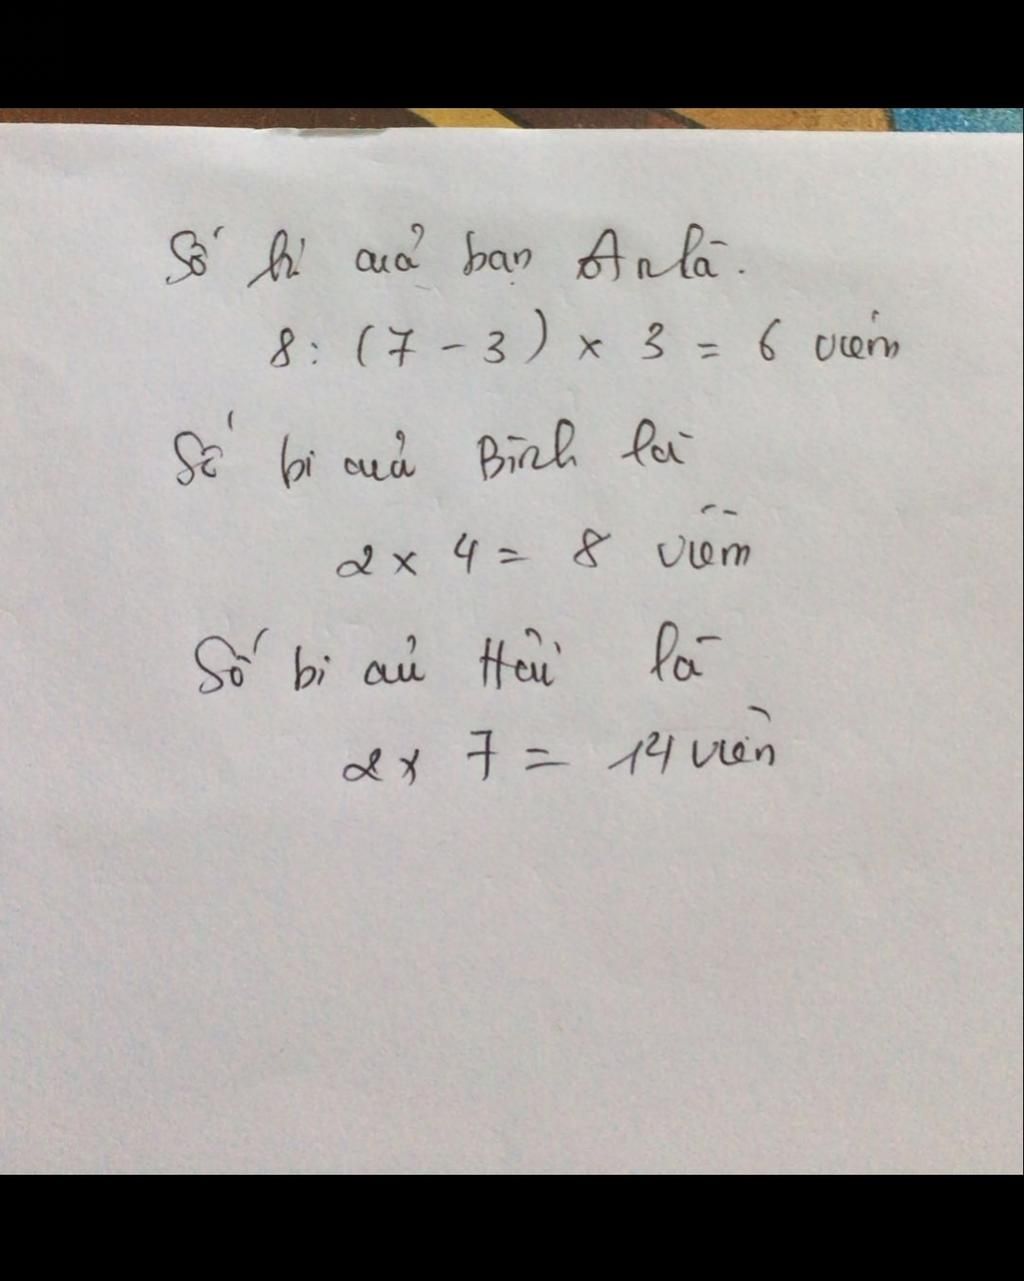 Số bi của bạn An là.
8 : (7 - 3) × 3 = 6 viên
Số bi của Bình là
2 × 4 = 8 viên
Số bi của Hải là
2 × 7 = 14 viên